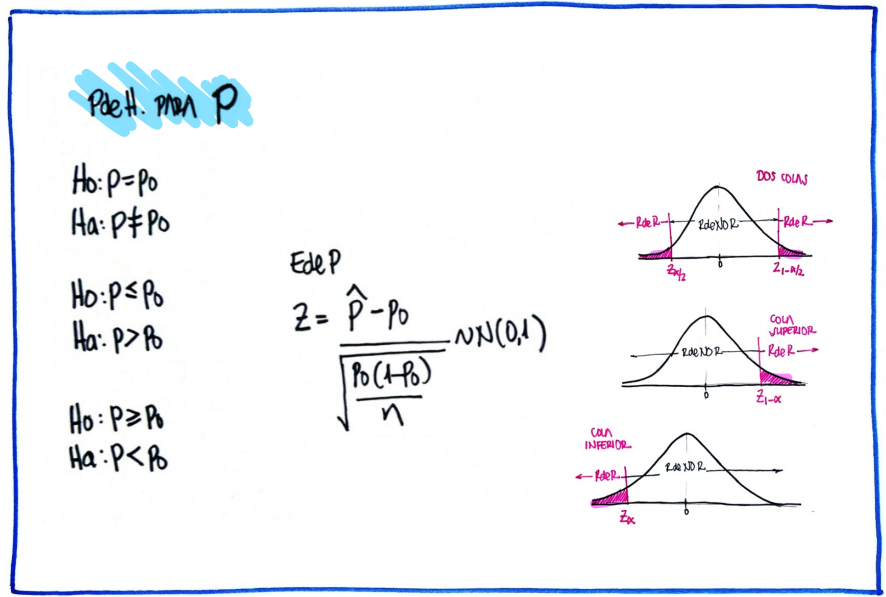 PdeH. PARA P
Ho: P = Po
Ha: P ≠ Po
Ho: P ≤ Po
Ha: P > Po
Ho: P ≥ Po
Ha: P < Po
EdeP
Z = p̂ - po
√ Po(1-Po)
n
~N(0,1)
DOS COLAS
RdeR RdeNOR RdeR
Zα/2 0 Z1-α/2
COLA
SUPERIOR
RdeNOR RdeR
0 Z1-α
COLA
INFERIOR
RdeR RdeNOR
Zα 0